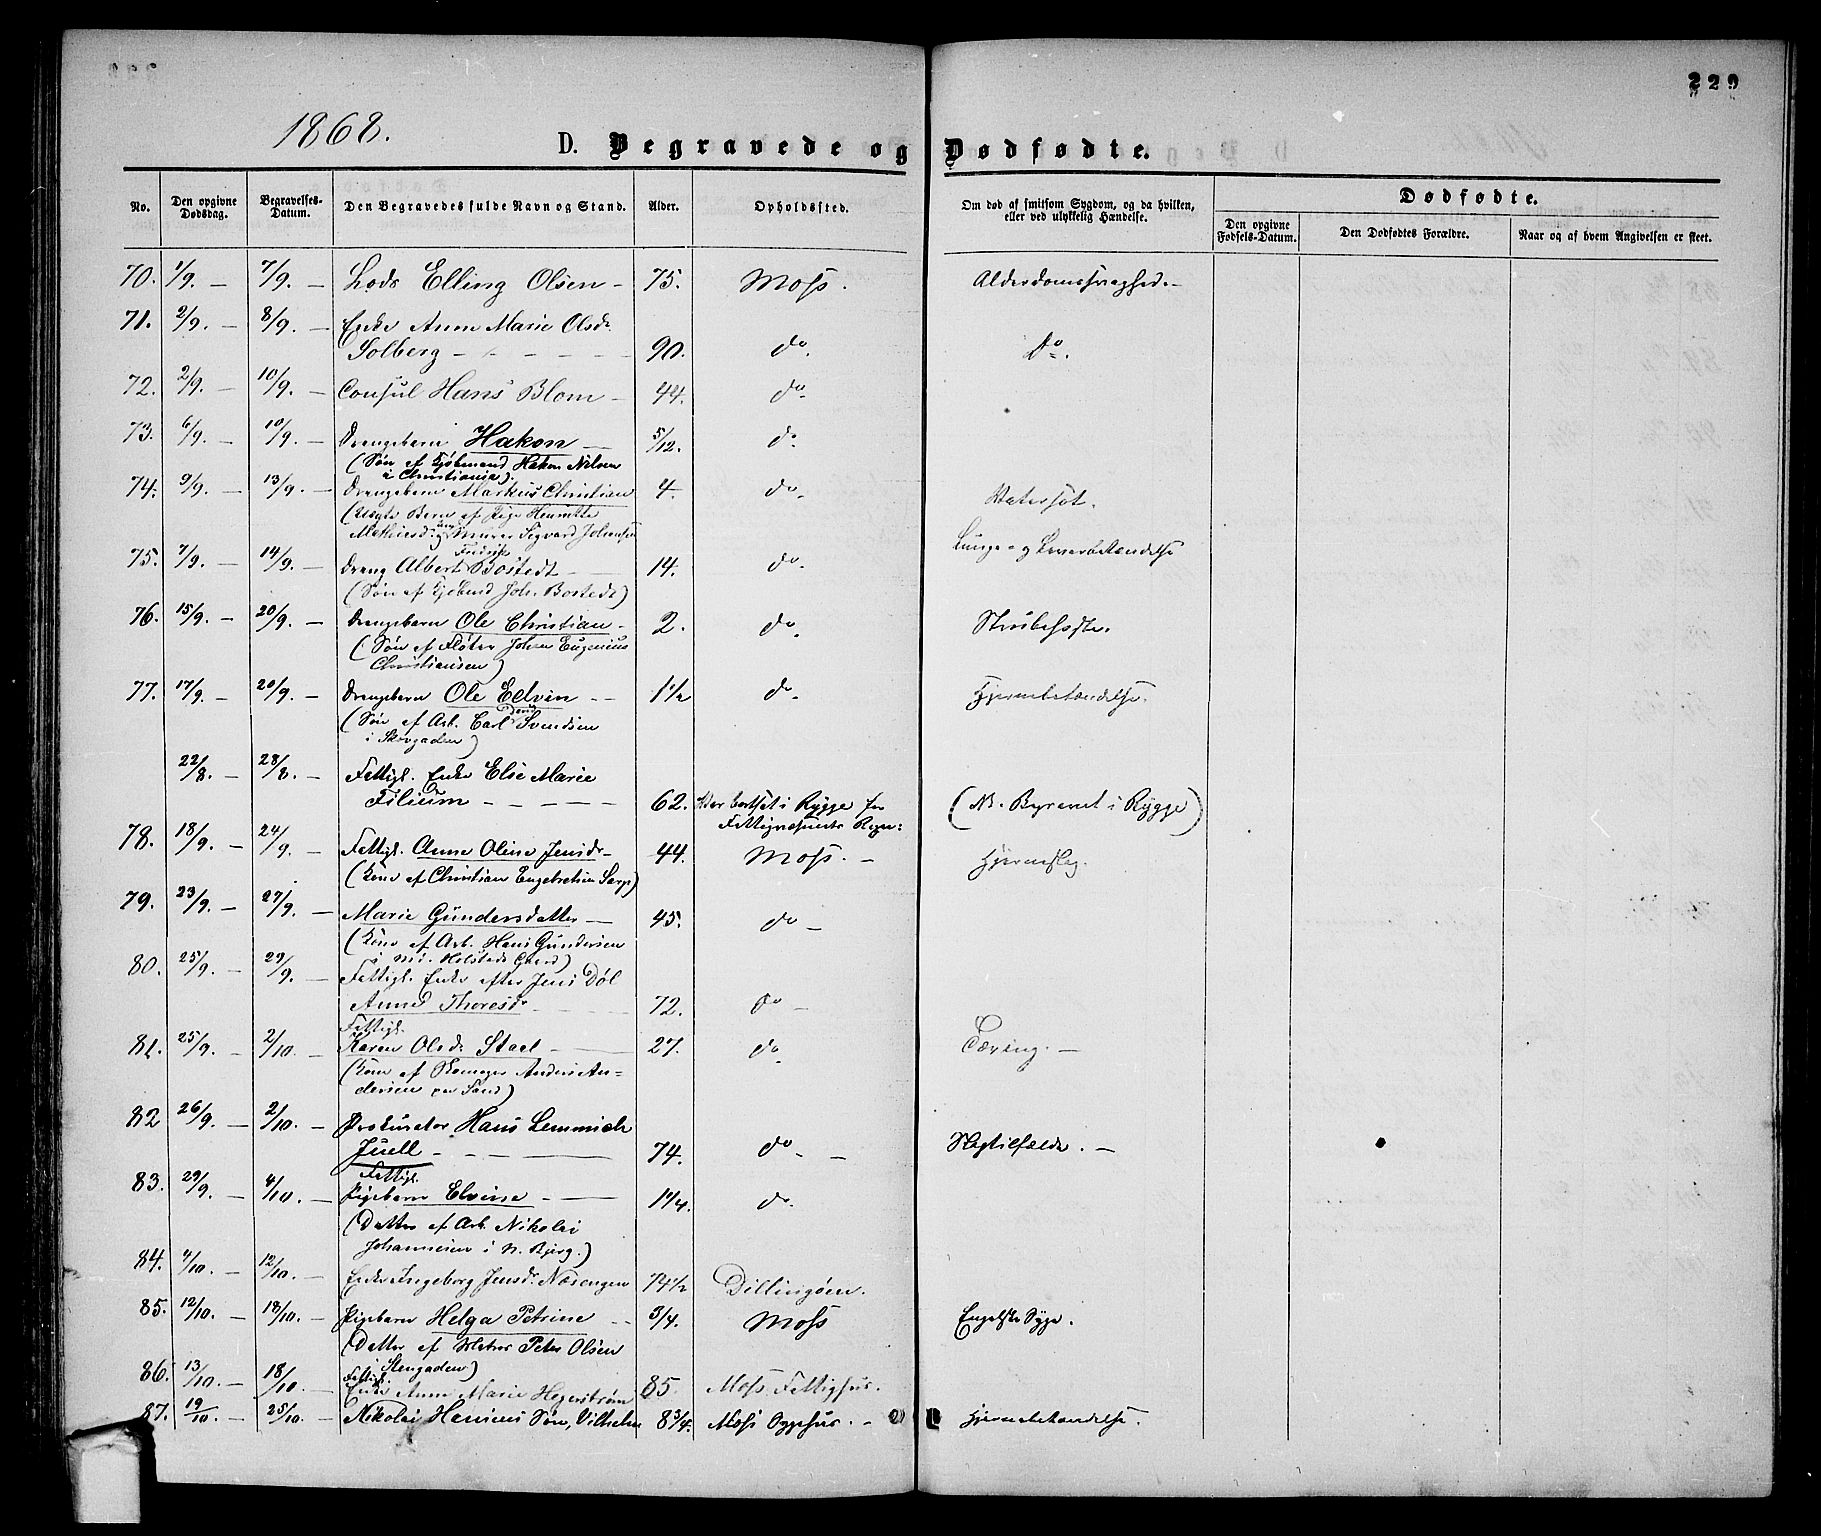 229
1868.
D. Begravede og Dødfødte.
No. Den opgivne Dødsdag. Begravelses-Datum. Den Begravedes fulde Navn og Stand. Alder. Opholdssted. Om død af smitsom Sygdom, og da hvilken, eller ved ulykkelig Hændelse. Dødfødte.
Den opgivne Fødsels-Datum. Den Dødfødtes Forældre. Naar og af hvem Angivelsen er skeet.
70. 1/9. — 7/9. — Lods Elling Olsen — 75. Moss. Alderdomssvaghed. —
71. 2/9. — 8/9. — Enke Anne Marie Olsdr.
Solberg — — — — — 90. do. Do.
72. 2/9. — 10/9. — Consul Hans Blom — 44. do.
73. 6/9. — 10/9. — Drengebarn Hakon — 5/12. do.
(Søn af Kjøbmand Hakon Nilsen
i Christiania).
74. 9/9. — 13/9. — Drengebarn Markus Christian 4. do. Vatersot.
(Uægte Barn af Pige Henriette
Mathisd. og Murer Sigvard Johansen
75. 7/9. — 14/9. — Dreng Albert Fredrik Bostedt — 14. do. Lunge- og Leverbetændelse
(Søn af Kjøbmd Joh. Bostedt)
76. 15/9. — 20/9. — Drengebarn Ole Christian — 2. do. Strubehoste.
(Søn af Fløter Johan Eugenius
Christiansen)
77. 17/9. — 20/9. — Drengebarn Ole Edvin — 1 1/2 do. Hjernebetændelse.
(Søn af Arb. Carl Svendsen
i Skovgaden)
22/8. — 28/8. — Fattigl. Enke Else Marie
Filium — — — — 62. Var bortsat i Rygge for (NB. Begravet i Rygge)
Fattigvæsenets Regn:
78. 18/9. — 24/9. — Fattigl. Anne Oline Jensdr. — 44. Moss. — Hjerneslag.
(Kone af Christian Engebretsen Sarp)
79. 23/9. — 27/9. — Marie Gundersdatter — 45. do —
(Kone af Arb. Hans Gundersen
i Holstads Gaard)
80. 25/9. — 29/9. — Fattigl. Enke efter Jens Døl
Anne Thoresdr — 72. do —
81. 25/9. — 2/10. — Fattigl.
Karen Olsdr. Stael — 27. do. Tæring. —
(Kone af Skomager Anders An-
dersen paa Sand)
82 26/9. — 2/10. — Prokurator Hans Lemmich
Juell — — — 74. do. — Slagtilfælde. —
83. 29/9. — 4/10. — Fattigl.
Pigebarn Elvine — — 1 1/4. do.
(Datter af Arb. Nikolai
Johannesen i N. Bjerg.)
84. 4/10. — 12/10. — Enke Ingeborg Jensdr. Næsengen 74 1/2 Dillingøen.
85. 12/10. — 18/10. — Pigebarn Helga Petrine — 3/4. Moss Engelske Syge.
(Datter af Peter Olsen
i Stengaden)
86. 13/10. — 18/10. — Fattigl.
Enke Anne Marie Hegerstrøm 85. Moss Fattighus.
87. 19/10. — 25/10. — Nikolai Hansens Søn, Vilhelm 8 3/4. Moss — Hjernebetændelse.